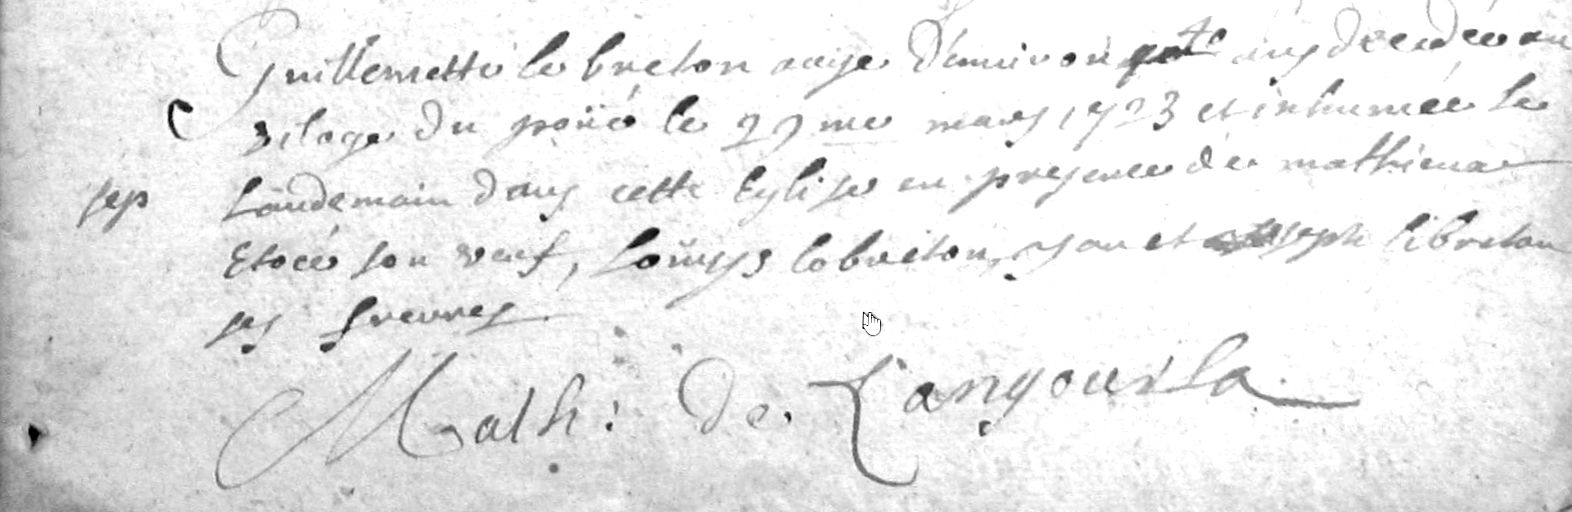 Guillemette le breton aage d'environ qnte ans decedée au
vilage du poüé le 27me mars 1723 et inhumée le
sep landemain dans cette Eglise en presence de mathieux
Etocé son veuf, Loüys lebreton, yan et joseph lebreton
ses freures
Math: de Langourla